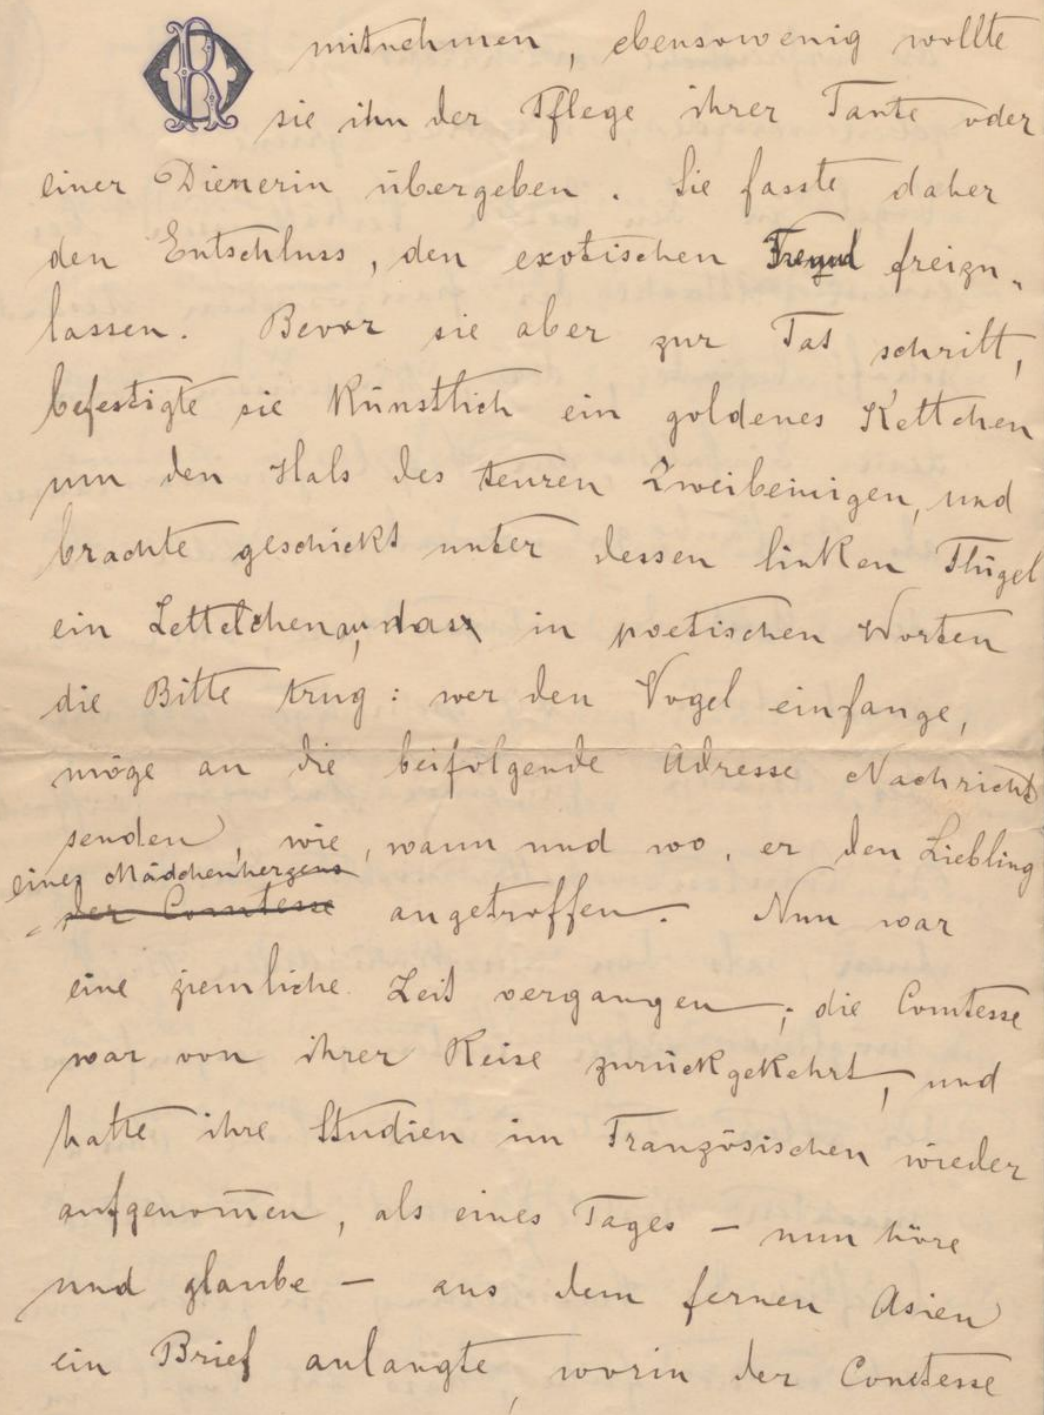 mitnehmen, ebensowenig wollte
sie ihn der Pflege ihrer Tante oder
einer Dienerin übergeben. Sie fasste daher
den Entschluss, den exotischen Freund freizu-
lassen. Bevor sie aber zur Tat schritt,
befestigte sie künstlich ein goldenes Kettchen
um den Hals des teuren Zweibeinigen, und
brachte geschickt unter dessen linken Flügel
ein Zettelchen an, das in poetischen Worten
die Bitte trug: wer den Vogel einfange,
möge an die beifolgende Adresse Nachricht
senden, wie, wann und wo, er den Liebling
eines Mädchenherzens
der Comtesse angetroffen. Nun war
eine ziemliche Zeit vergangen; die Comtesse
war von ihrer Reise zurückgekehrt, und
hatte ihre Studien im Französischen wieder
aufgenom̅en, als eines Tages – nun höre
und glaube – aus dem fernen Asien
ein Brief anlangte, worin der Comtesse